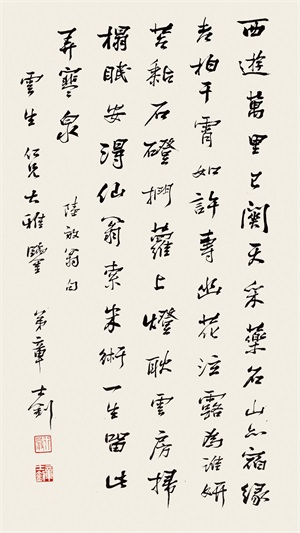 西遊萬里已關天采藥名山亦宿緣
老柏干霄如許壽幽花泣露為誰妍
苔黏石磴捫蘿上燈耿雲房掃
榻眠安得仙翁索米術一生留此
弄寒泉
陸放翁句
雲生仁兄大雅鑒 弟章士釗